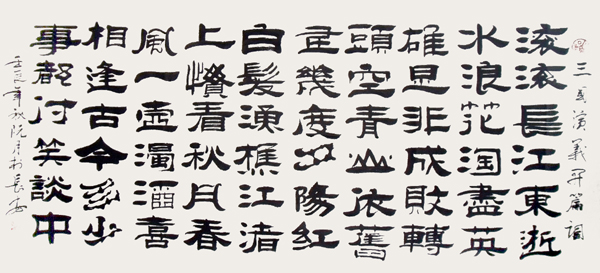 三国演義開篇詞
滚滚長江東逝
水浪花淘盡英
雄是非成敗轉
頭空青山依舊
在幾度夕陽紅
白髮漁樵江渚
上慣看秋月春
風一壺濁酒喜
相逢古今多少
事都付笑談中
壬辰年秋 於長安